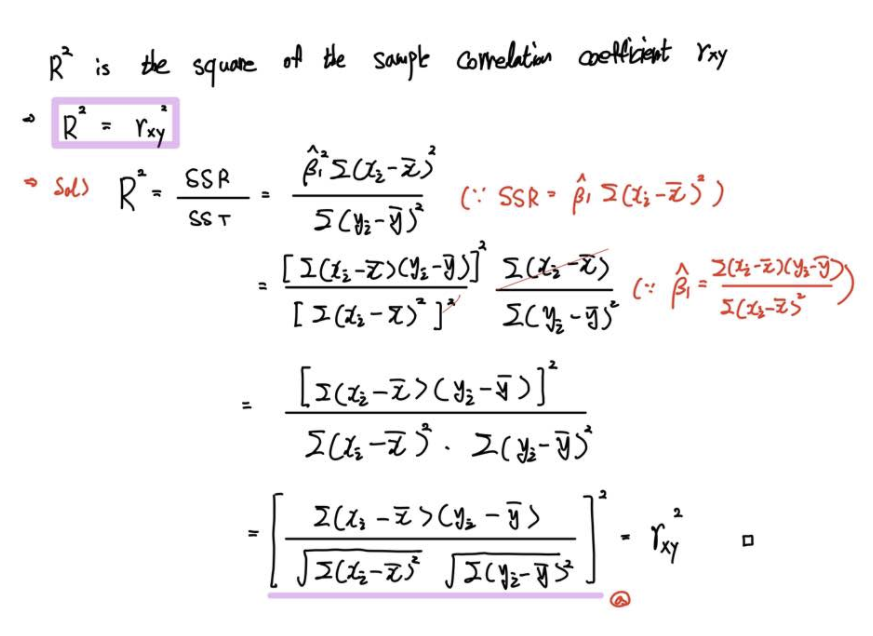 R² is the square of the sample correlation coefficient rxy
⇒ R² = rxy²
⇒ Sol) R² = SSR / SST = β̂₁² Σ(xᵢ-x̄)² / Σ(yᵢ-ȳ)² (∵ SSR = β̂₁ Σ(xᵢ-x̄)²)
= [Σ(xᵢ-x̄)(yᵢ-ȳ)]² / [Σ(xᵢ-x̄)²]² Σ(xᵢ-x̄) / Σ(yᵢ-ȳ)² (∵ β̂₁ = Σ(xᵢ-x̄)(yᵢ-ȳ) / Σ(xᵢ-x̄)²)
= [Σ(xᵢ-x̄)(yᵢ-ȳ)]² / Σ(xᵢ-x̄)² · Σ(yᵢ-ȳ)²
= [Σ(xᵢ-x̄)(yᵢ-ȳ) / √Σ(xᵢ-x̄)² √Σ(yᵢ-ȳ)²]² = rxy² □
ⓐ